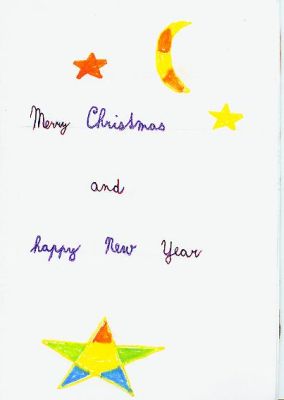 Merry Christmas
and
happy New Year